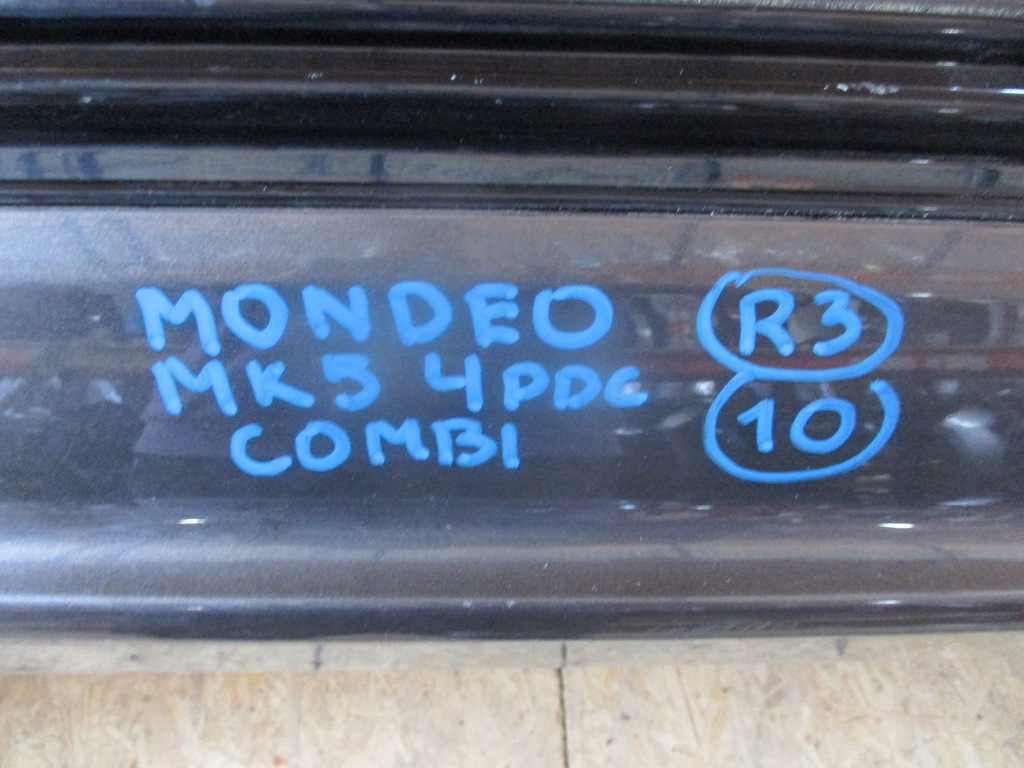 MONDEO
MK5 4PDC
COMBI
R3
10